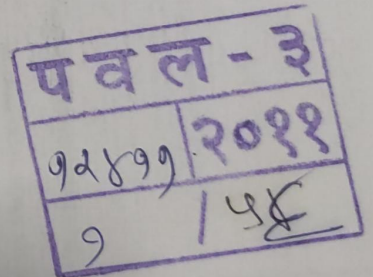 पवल-३
१२४११ २०११
१ / ५४